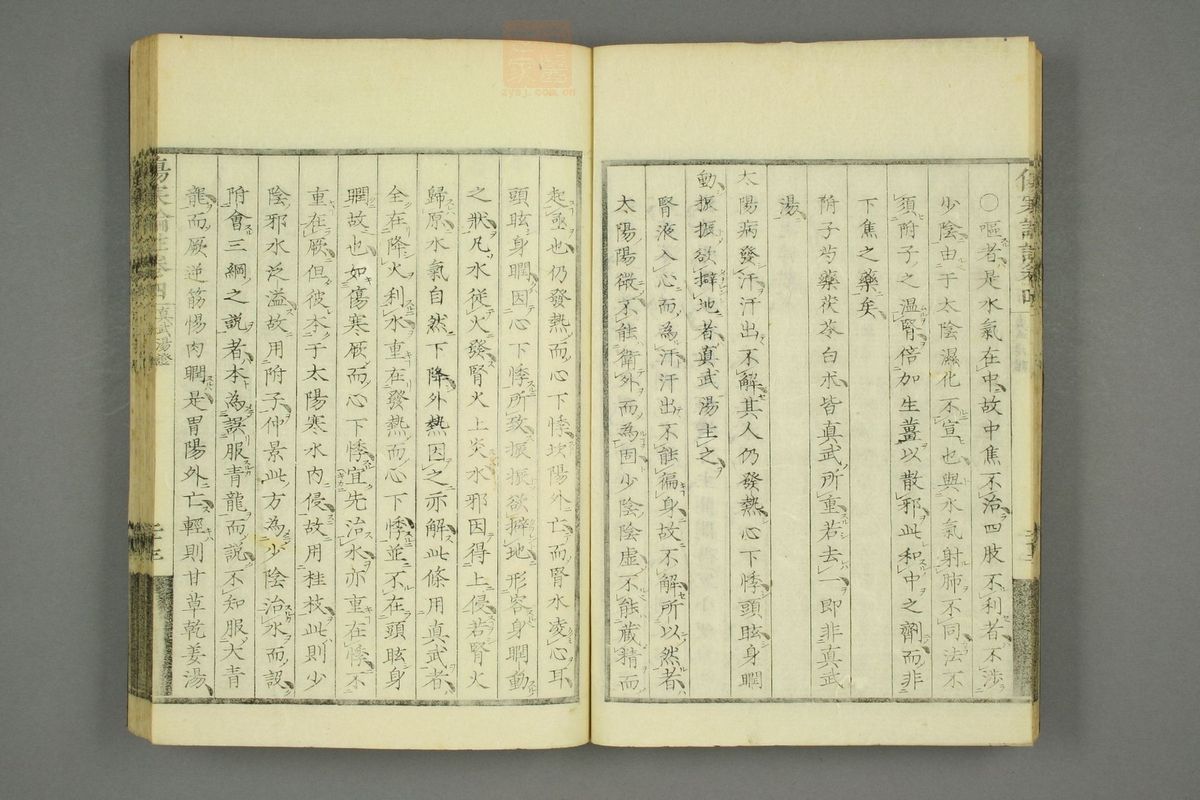 〇嘔者是水氣在中故中焦不治四肢不利者不涉
少陰由于太陰濕化不宣也與水氣射肺不同法不
須附子之溫腎倍加生薑以散邪此和中之劑而非
下焦之藥矣
附子芍藥茯苓白朮皆真武所重若去一即非真武
湯
太陽病發汗汗出不解其人仍發熱心下悸頭眩身瞤
動振振欲擗地者真武湯主之
腎液入心而為汗汗出不能徧身故不解所以然者
太陽陽微不能衛外而為固少陰陰虛不能藏精而
起亟也仍發熱而心下悸坎陽外亡而腎水凌心耳
頭眩身瞤因心下悸所致振振欲擗地形容身瞤動
之狀凡水從火發腎火上炎水邪因得上侵若腎火
歸原水氣自然下降外熱因之亦解此條用真武者
全在降火利水重在發熱而心下悸並不在頭眩身
瞤故也如傷寒厥而心下悸宜先治水亦重在悸不
重在厥但彼本于太陽寒水內侵故用桂枝此則少
陰邪水泛溢故用附子仲景此方為少陰治水而設
附會三綱之說者本為誤服青龍而說不知服大青
龍而厥逆筋惕肉瞤是胃陽外亡輕則甘草乾姜湯
真武湯證
zysj.com.cn